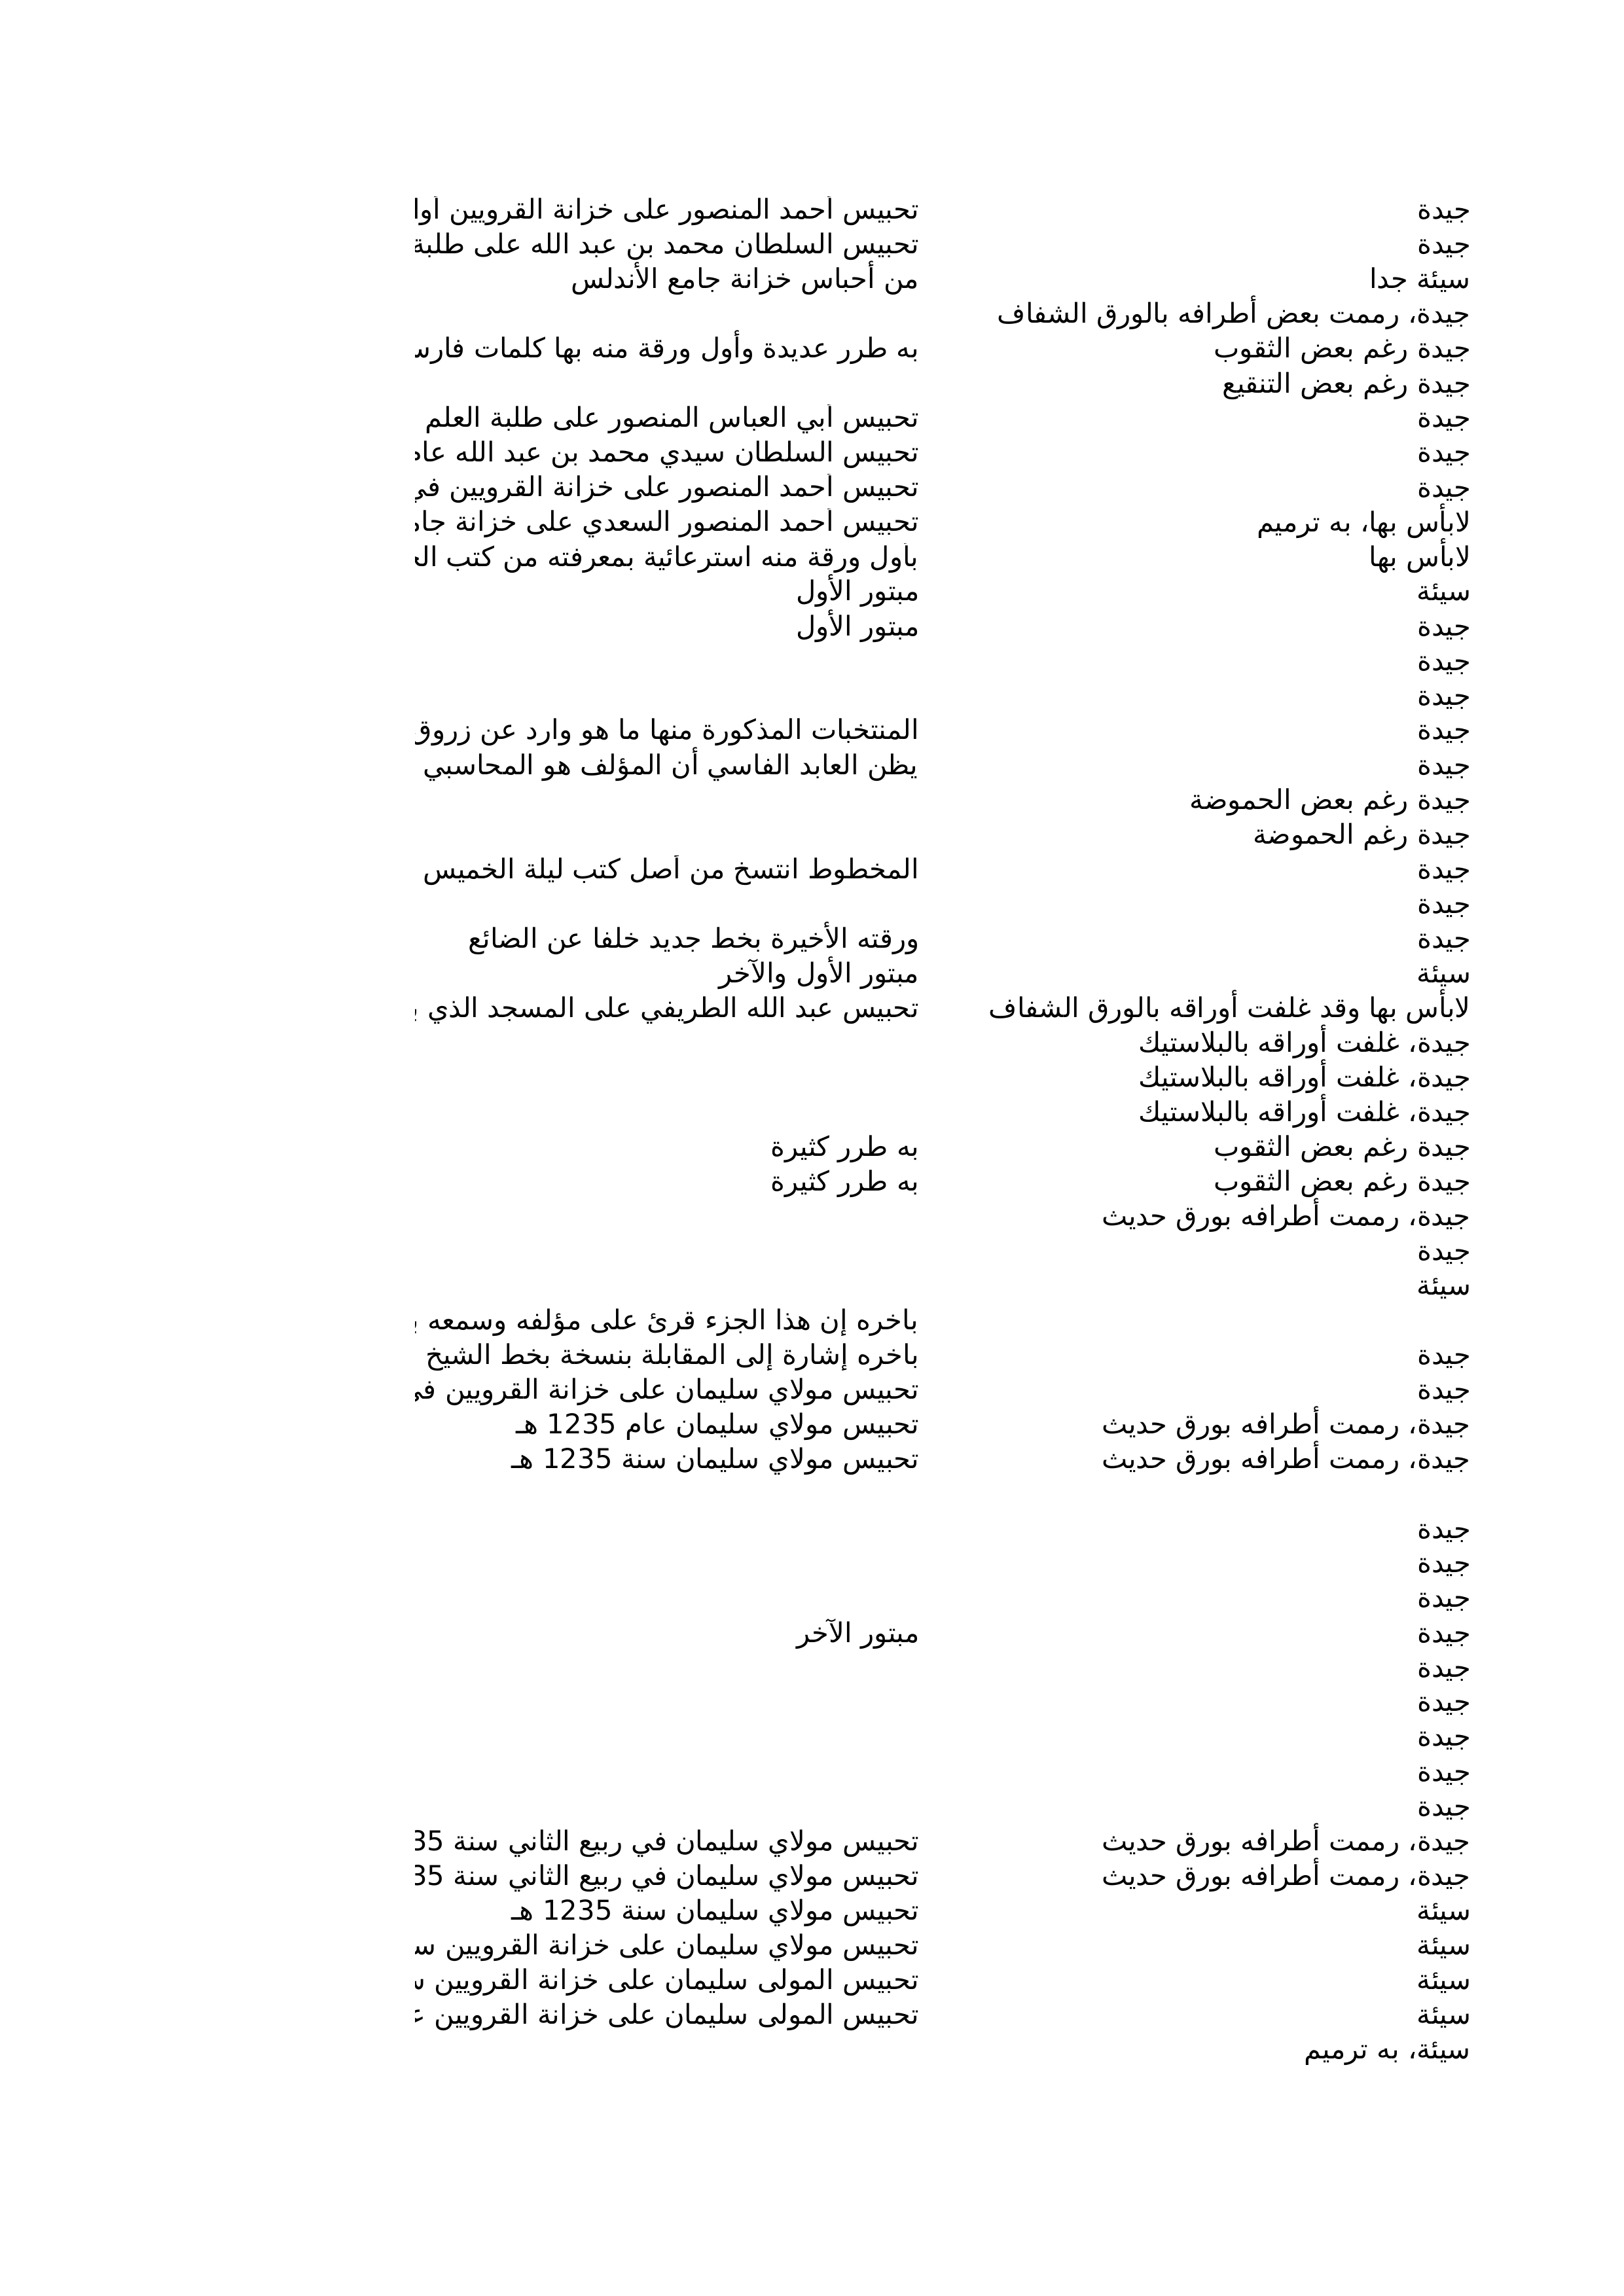 جيدة تحبيس أحمد المنصور على خزانة القرويين أوا
جيدة تحبيس السلطان محمد بن عبد الله على طلبة
سيئة جدا من أحباس خزانة جامع الأندلس
جيدة، رممت بعض أطرافه بالورق الشفاف
جيدة رغم بعض الثقوب به طرر عديدة وأول ورقة منه بها كلمات فارس
جيدة رغم بعض التنقيع
جيدة تحبيس أبي العباس المنصور على طلبة العلم
جيدة تحبيس السلطان سيدي محمد بن عبد الله عام
جيدة تحبيس أحمد المنصور على خزانة القرويين في
لابأس بها، به ترميم تحبيس أحمد المنصور السعدي على خزانة جام
لابأس بها بأول ورقة منه استرعائية بمعرفته من كتب
سيئة مبتور الأول
جيدة مبتور الأول
جيدة
جيدة
جيدة المنتخبات المذكورة منها ما هو وارد عن زروق
جيدة يظن العابد الفاسي أن المؤلف هو المحاسبي
جيدة رغم بعض الحموضة
جيدة رغم الحموضة
جيدة المخطوط انتسخ من أصل كتب ليلة الخميس
جيدة
جيدة ورقته الأخيرة بخط جديد خلفا عن الضائع
سيئة مبتور الأول والآخر
لابأس بها وقد غلفت أوراقه بالورق الشفاف تحبيس عبد الله الطريفي على المسجد الذي
جيدة، غلفت أوراقه بالبلاستيك
جيدة، غلفت أوراقه بالبلاستيك
جيدة، غلفت أوراقه بالبلاستيك
جيدة رغم بعض الثقوب به طرر كثيرة
جيدة رغم بعض الثقوب به طرر كثيرة
جيدة، رممت أطرافه بورق حديث
جيدة
سيئة
باخره إن هذا الجزء قرئ على مؤلفه وسمعه
جيدة باخره إشارة إلى المقابلة بنسخة بخط الشيخ
جيدة تحبيس مولاي سليمان على خزانة القرويين في
جيدة، رممت أطرافه بورق حديث تحبيس مولاي سليمان عام 1235 هـ
جيدة، رممت أطرافه بورق حديث تحبيس مولاي سليمان سنة 1235 هـ
جيدة
جيدة
جيدة
جيدة مبتور الآخر
جيدة
جيدة
جيدة
جيدة
جيدة
جيدة، رممت أطرافه بورق حديث تحبيس مولاي سليمان في ربيع الثاني سنة 35
جيدة، رممت أطرافه بورق حديث تحبيس مولاي سليمان في ربيع الثاني سنة 35
سيئة تحبيس مولاي سليمان سنة 1235 هـ
سيئة تحبيس مولاي سليمان على خزانة القرويين س
سيئة تحبيس المولى سليمان على خزانة القرويين س
سيئة تحبيس المولى سليمان على خزانة القرويين ع
سيئة، به ترميم